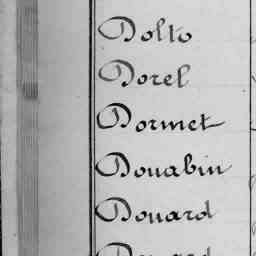 Dolto
Dorel
Dormet
Douabin
Douard